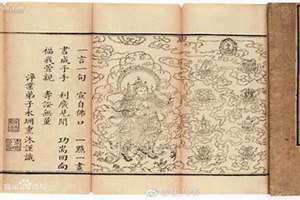 一言一句 宣自佛口 一點一畫
書成予手 利廣見聞 回向
福我萱親 壽證無量
淨業弟子永 沐謹識